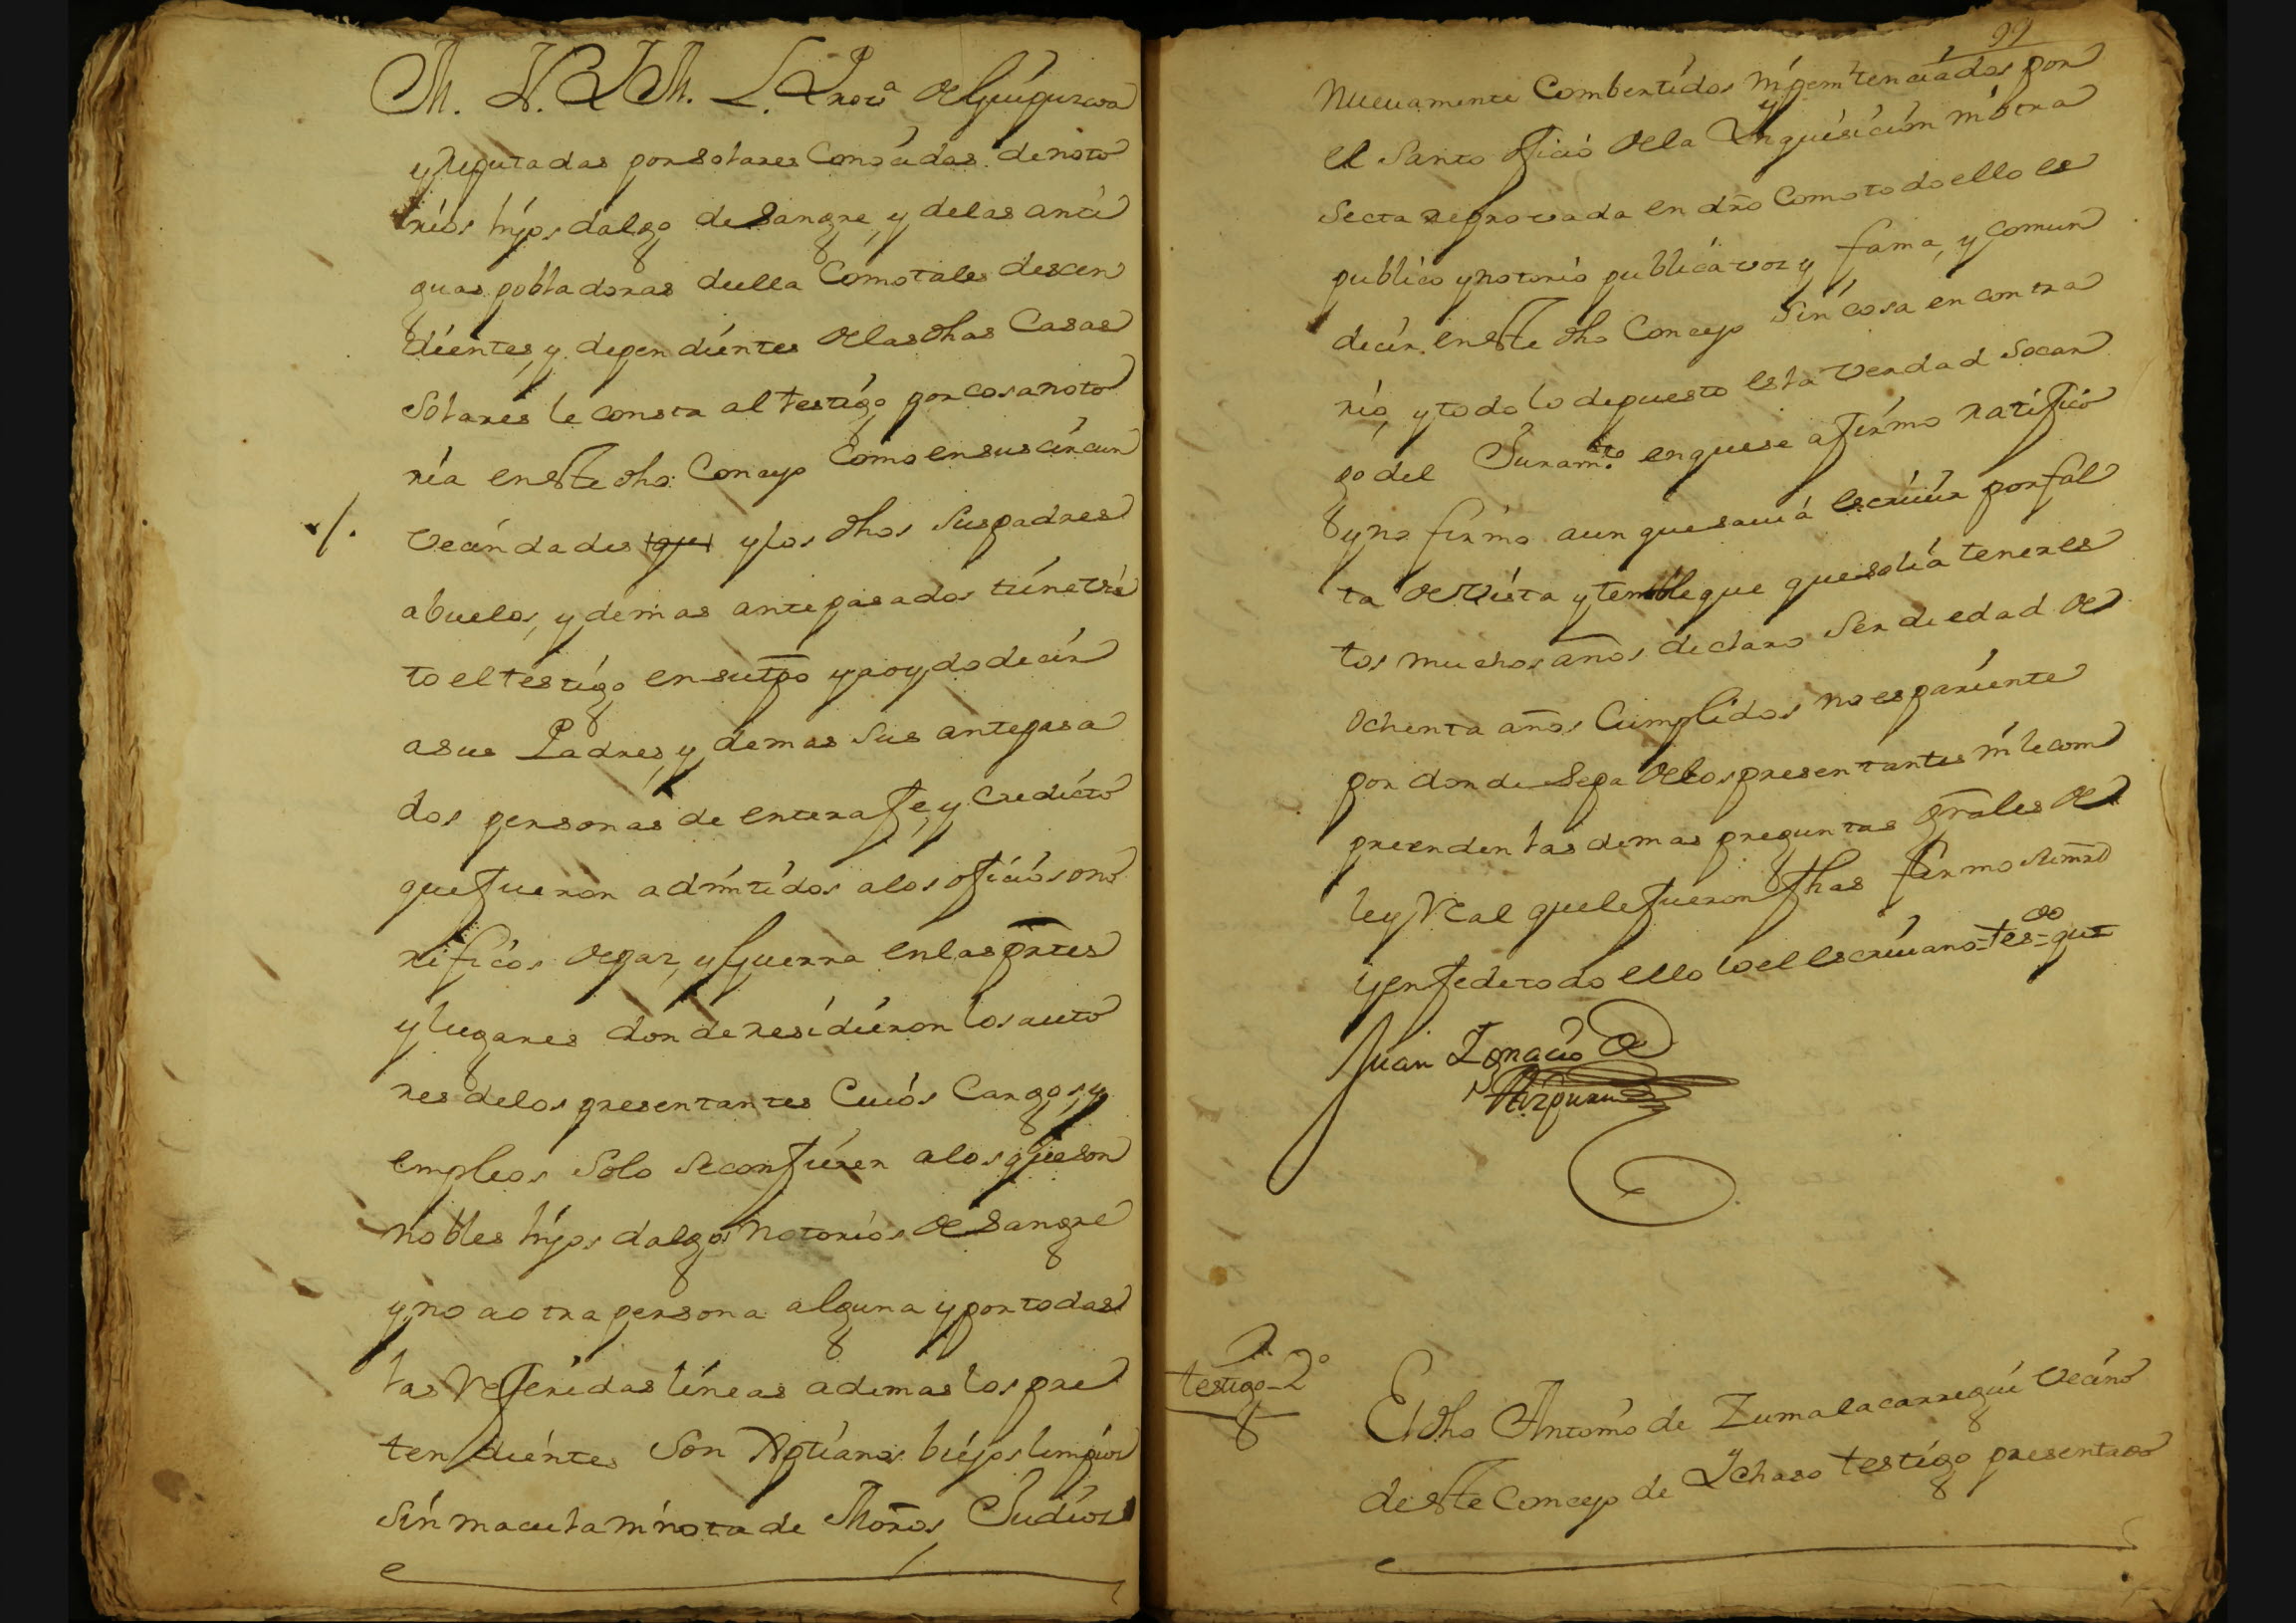 M. N. Y M. L. Prov.ª de Guipuzcoa
y Reputadas por solares Conocidas de noto
rios hijos dalgo de Sangre, y de las anti
guas pobladoras della Como tales descen
dientes, y dependientes de las dhas Casas
Solares le consta al testigo por cosa noto
ria en este dho Concejo Como en sus circun
vecindades que y los dhos Sus padres
abuelos, y demas antepasados tiene vis
to el testigo en su tpo y a oydo decir
a sus Padres, y demas sus antepasa
dos personas de entera fe, y credicto
que fueron admitidos a los oficios ono
rificos de paz, y Guerra en las partes
y lugares donde residieron los auto
res de los presentantes Cuios Cargos, y
empleos Solo se confieren a los que son
nobles hijos dalgo notorios de Sangre
y no a otra persona alguna y por todas
las Referidas lineas ademas los pre
tendientes Son Xptianos biejos limpios
Sin macula ni nota de Moros, Judios
99
Nuevamente Combertidos ni penitenciados por
el Santo Oficio de la Ynquisicion ni otra
Secta reprovada en dro Como todo ello es
publico y notorio publica voz y fama, y comun
decir en este dho Concejo Sin cosa en contra
rio, y todo lo depuesto es la verdad so car
go del Juramto en que se afirmo ratifico
y no firmo aunque savia escriuir por fal
ta de Vista y tembleque que solia tener es
tos muchos años declaro Ser de edad de
Ochenta años Cumplidos no es pariente
por donde Sepa de los presentantes ni le com
preenden las demas preguntas grales de
ley Real que le fueron fhas firmo su mrd
y en fe de todo ello Yo el Escriuano = tes=do que=
Juan Ignacio de
Aizpuru
testigo 2º
El dho Antonio de Zumalacarregui vecino
de este Concejo de Ychaso testigo presentado